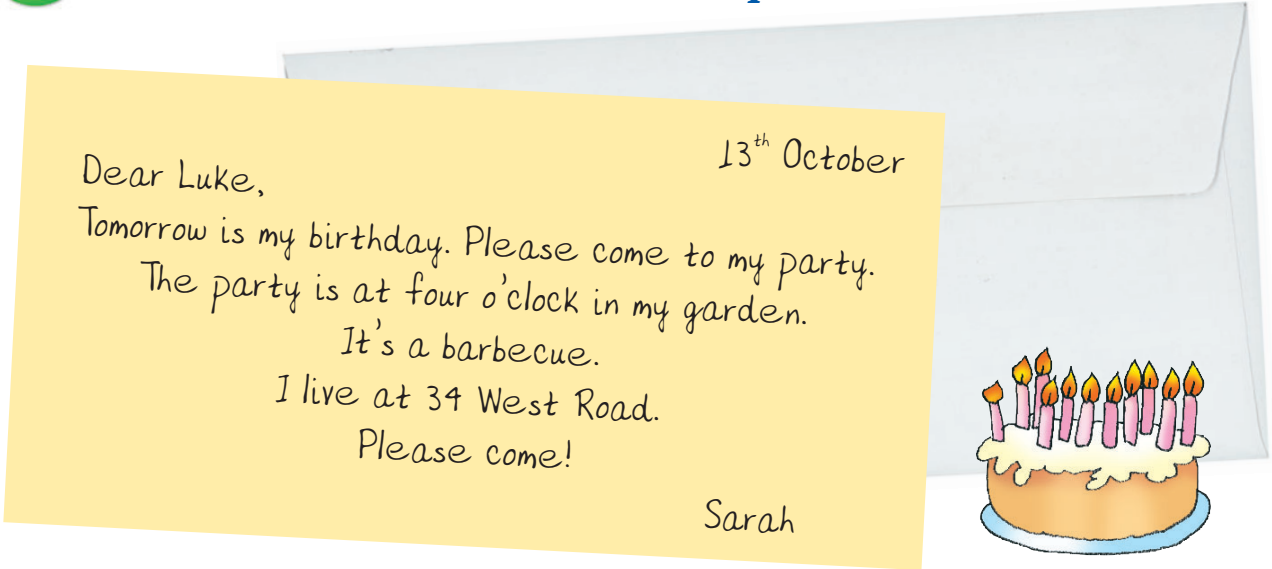 13th October
Dear Luke,
Tomorrow is my birthday. Please come to my party.
The party is at four o'clock in my garden.
It's a barbecue.
I live at 34 West Road.
Please come!
Sarah